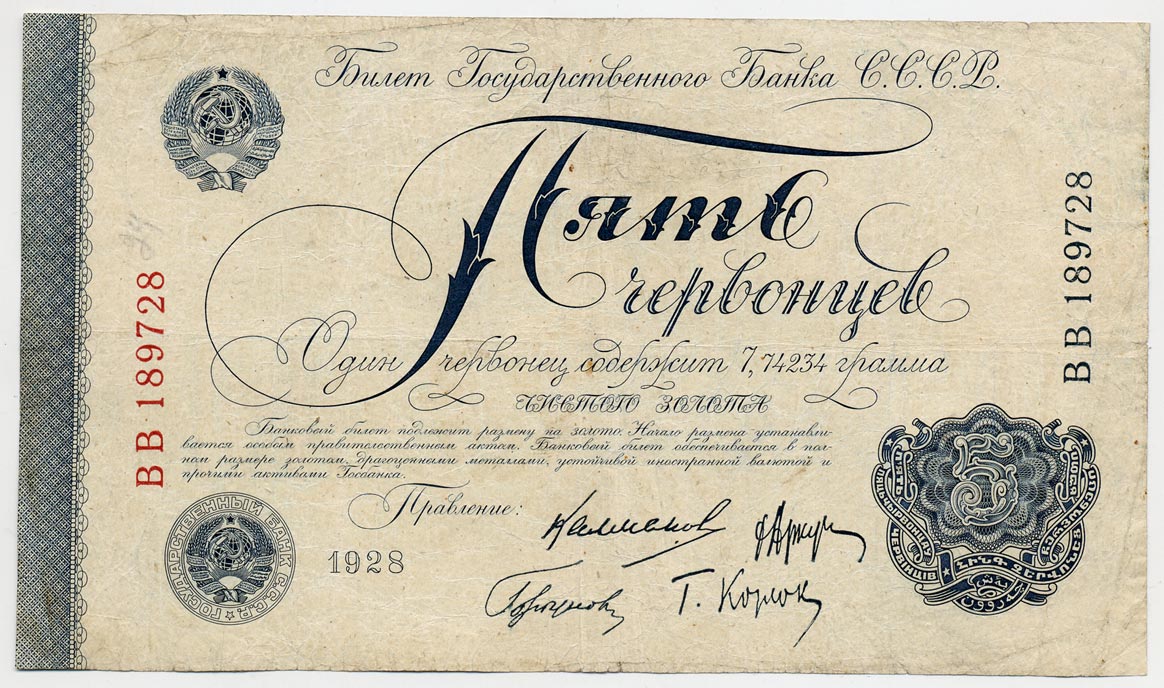 Билет Государственного Банка С.С.С.Р.
Пять
червонцев
Один червонец содержит 7,74234 грамма
чистого золота
Банковый билет подлежит размену на золото. Начало размена устанавли-
вается особым правительственным актом. Банковый билет обеспечивается в пол-
ном размере золотом, драгоценными металлами, устойчивой иностранной валютой и
прочими активами Госбанка.
Правление:
1928
ВВ 189728
ВВ 189728
ГОСУДАРСТВЕННЫЙ БАНК С.С.С.Р.
5